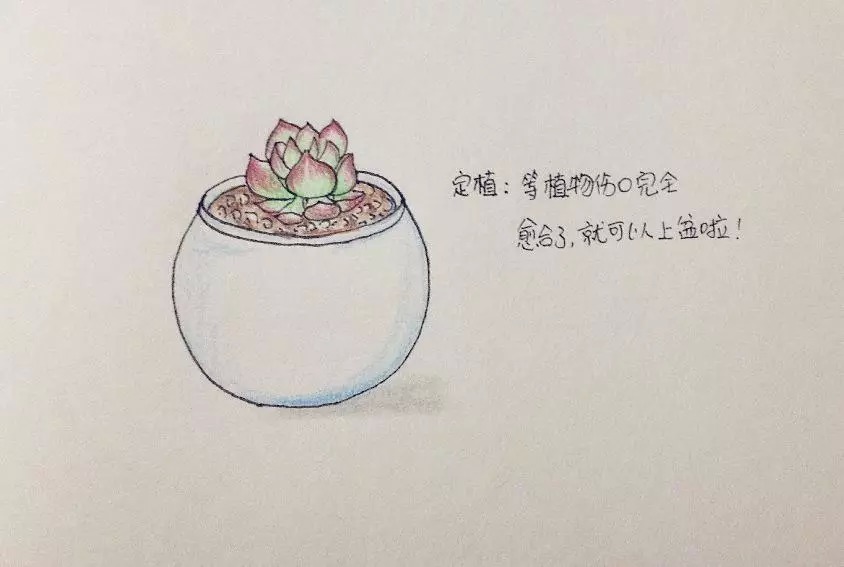 定植：等植物伤口完全
愈合了，就可以上盆啦！